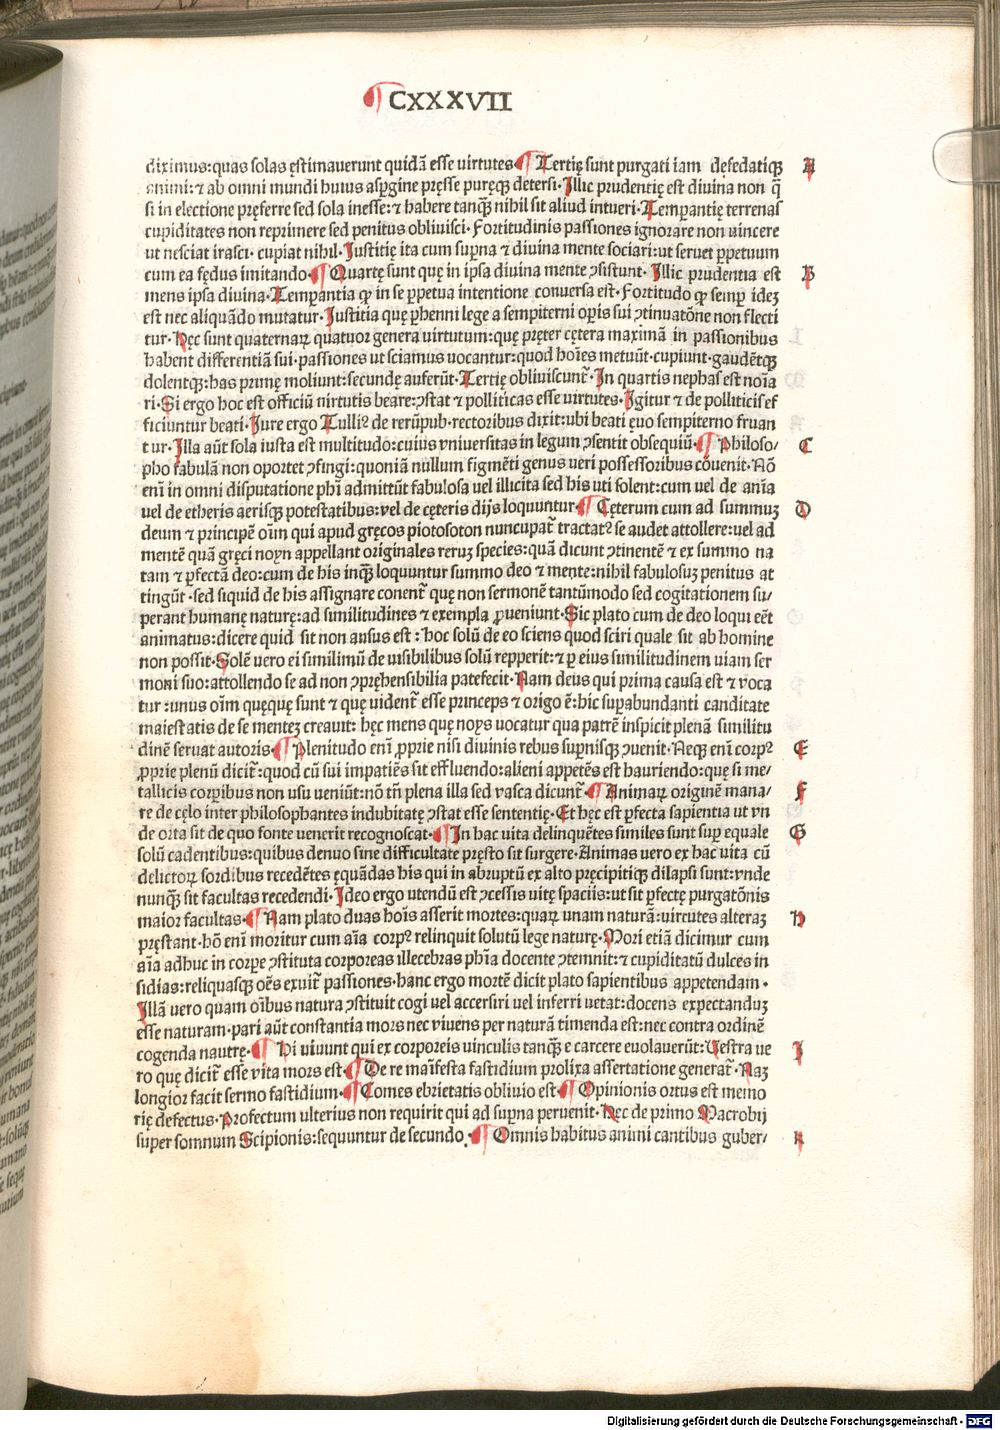 ¶ CXXXVII
diximus:quas solas ęstimauerunt quidã esse uirtutes ¶ Tertię sunt purgati iam dęfedatiqꝫ A
animi:⁊ ab omni mundi huius aspꝑgine pręsse puręqꝫ detersi·Illic prudentię est diuina non q̃
si in electione pręferre sed sola inesse:⁊ habere tanqꝫ nihil sit aliud intueri·Temꝑantię terrenas
cupiditates non reprimere sed penitus obliuisci·Fortitudinis passiones ignorare non uincere
ut nesciat irasci·cupiat nihil·Justitię ita cum suꝑna ⁊ diuina mente sociari:ut seruet ꝑpetuum
cum ea fędus imitando ¶ Quartę sunt quę in ipsa diuina mente ꝯsistunt·Illic prudentia est B
mens ipsa diuina·Temꝑantia ꝙ in se ꝑpetua intentione conuersa est·Fortitudo ꝙ semꝑ ideꝫ
est nec aliquãdo mutatur·Justitia quę ꝑhenni lege a sempiterni oꝑis sui ꝯtinuatõne non flecti
tur·Hęc sunt quaternaꝝ quatuoꝛ genera uirtutum:quę pręter cętera maximã in passionibus
habent differentiã sui·passiones ut sciamus uocantur:quod hoĩes metuũt·cupiunt·gaudẽtqꝫ
dolentqꝫ:has primę moliunt:secundę auferũt·Tertię obliuiscunt̃·In quartis nephas est noĩa
ri·Si ergo hoc est officiũ uirtutis beare:ꝯstat ⁊ polliticas esse uirtutes·Igitur ⁊ de polliticis ef
ficiuntur beati·Jure ergo Tulliꝰ de rerũpub·rectoribus dixit:ubi beati ęuo sempiterno fruan
tur·Illa aũt sola iusta est multitudo:cuius vniuersitas in legum ꝯsentit obsequiũ ¶ Philoso⸗ C
pho fabulã non oportet ꝯfingi:quoniã nullum figmẽti genus ueri possessoribus cõuenit·Nõ
enĩ in omni disputatione phĩ admittũt fabulosa uel illicita sed his uti solent:cum uel de anĩa
uel de etheris aerisqꝫ potestatibus:vel de cęteris dijs loquuntur ¶ Cęterum cum ad summuꝫ D
deum ⁊ principẽ oĩm qui apud gręcos piotosoton nuncupat̃ tractatꝰ se audet attollere:uel ad
mentẽ quã gręci noyn appellant originales reruꝫ species:quã dicunt ꝯtinentẽ ⁊ ex summo na
tam ⁊ ꝑfectã deo:cum de his inqꝫ loquuntur summo deo ⁊ mente:nihil fabulosuꝫ penitus at
tingũt·sed siquid de his assignare conent̃ quę non sermonẽ tantũmodo sed cogitationem su⸗
perant humanę naturę:ad similitudines ⁊ exempla ꝓueniunt·Sic plato cum de deo loqui eẽt
animatus:dicere quid sit non ausus est:hoc solũ de eo sciens quod sciri quale sit ab homine
non possit·Solẽ vero ei similimũ de uisibilibus solũ repperit:⁊ ꝑ eius similitudinem uiam ser
moni suo:attollendo se ad non ꝯpręhensibilia patefecit·Nam deus qui prima causa est ⁊ voca
tur:unus oĩm quęquę sunt ⁊ quę uident̃ esse princeps ⁊ origo ẽ:hic suꝑabundanti canditate
maiestatis de se menteꝫ creauit:hęc mens quę noys uocatur qua patrẽ inspicit plenã similitu
dinẽ seruat autoris ¶ Plenitudo enĩ ꝓprie nisi diuinis rebus suꝑnisqꝫ ꝯuenit·Neqꝫ enĩ corpꝰ E
ꝓprie plenũ dicit̃:quod cũ sui impatiẽs sit effluendo:alieni appetẽs est hauriendo:quę si me⸗
tallicis corꝑibus non usu ueniũt:nõ tñ plena illa sed vasca dicunt̃ ¶ Animaꝝ originẽ mana⸗ F
re de cęlo inter philosophantes indubitatę ꝯstat esse sententię·Et hęc est ꝑfecta sapientia ut vn
de orta sit de quo fonte venerit recognoscat ¶ In hac uita delinquẽtes similes sunt suꝑ equale G
solũ cadentibus:quibus denuo sine difficultate pręsto sit surgere·Animas uero ex hac uita cũ
delictoꝝ sordibus recedẽtes ęquandas his qui in abruptũ ex alto pręcipitiqꝫ dilapsi sunt:vnde
nunqꝫ sit facultas recedendi·Ideo ergo utendũ est ꝯcessis uitę spaciis:ut sit ꝑfectę purgatõnis
maior facultas ¶ Nam plato duas hoĩs asserit mortes:quaꝝ unam naturã:uirtutes alteraꝫ H
pręstant·hõ enĩ moritur cum aĩa corpꝰ relinquit solutũ lege naturę·Mori etiã dicimur cum
aĩa adhuc in corꝑe ꝯstituta corporeas illecebras phĩa docente ꝯtemnit:⁊ cupiditatũ dulces in
sidias:reliquasqꝫ oẽs exuit̃ passiones·hanc ergo mortẽ dicit plato sapientibus appetendam·
Illã uero quam oĩbus natura ꝯstituit cogi uel accersiri uel inferri uetat:docens expectanduꝫ
esse naturam·pari aũt constantia mors nec viuens per naturã timenda est:nec contra ordinẽ
cogenda nautrę ¶ Hi viuunt qui ex corporeis uinculis tanqꝫ e carcere euolauerũt:Uestra ue I
ro quę dicit̃ esse vita mors est ¶ De re maĩfesta fastidium prolixa assertatione generat̃·Naꝫ
longior facit sermo fastidium ¶ Comes ebrietatis obliuio est ¶ Opinionis ortus est memo
rię defectus·Profectum ulterius non requirit qui ad suꝑna peruenit·Hec de primo Macrobij
super somnum Scipionis:sequuntur de secundo. ¶ Omnis habitus animi cantibus guber⸗ K
Digitalisierung gefördert durch die Deutsche Forschungsgemeinschaft - DFG